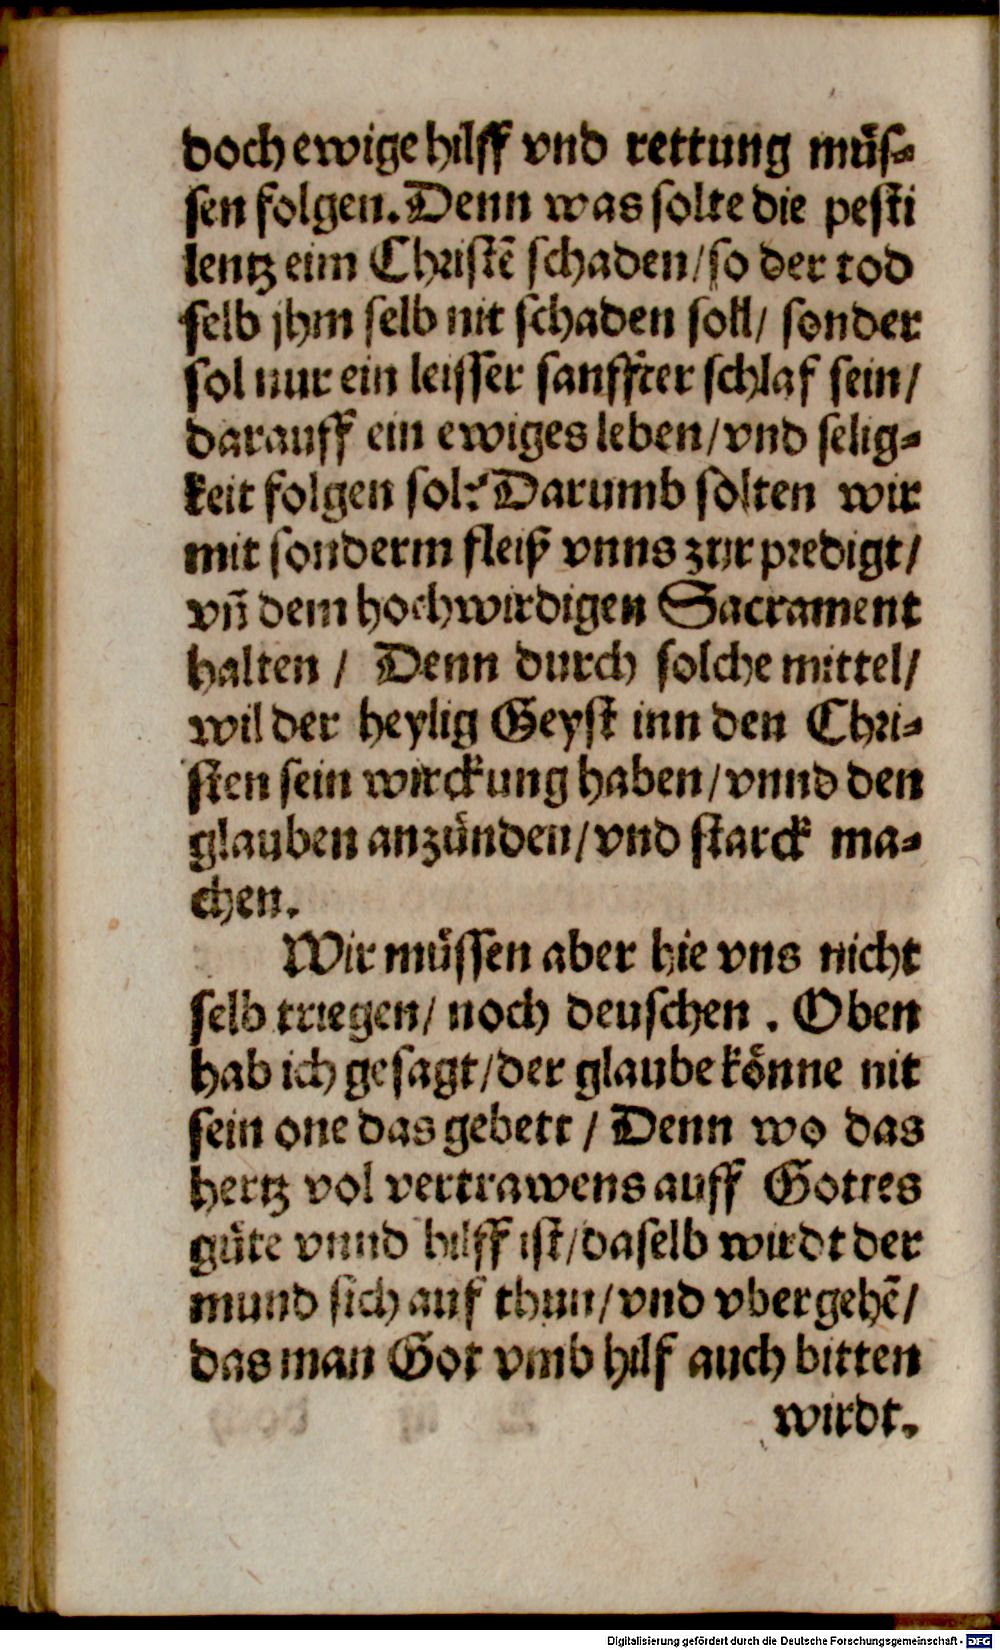 doch ewige hilff vnd rettung müſ⸗
ſen folgen. Denn was ſolte die peſti
lentz eim Chriſtē ſchaden/ ſo der tod
ſelb jhm ſelb nit ſchaden ſoll/ ſonder
ſol nur ein leiſſer ſanffter ſchlaf ſein/
darauff ein ewiges leben/ vnd ſelig⸗
keit folgen ſol? Darumb ſolten wir
mit ſonderm fleiß vnns zur predigt/
vñ dem hochwirdigen Sacrament
halten / Denn durch ſolche mittel/
wil der heylig Geyſt inn den Chri⸗
ſten ſein wirckung haben/ vnnd den
glauben anzünden/ vnd ſtarck ma⸗
chen.
Wir müſſen aber hie vns nicht
ſelb triegen/ noch deuſchen . Oben
hab ich geſagt/ der glaube könne nit
ſein one das gebett / Denn wo das
hertz vol vertrawens auff Gottes
güte vnnd hilff iſt/ daſelb wirdt der
mund ſich auf thun/ vnd vbergehē/
das man Got vmb hilf auch bitten
wirdt.
Digitalisierung gefördert durch die Deutsche Forschungsgemeinschaft - DFG